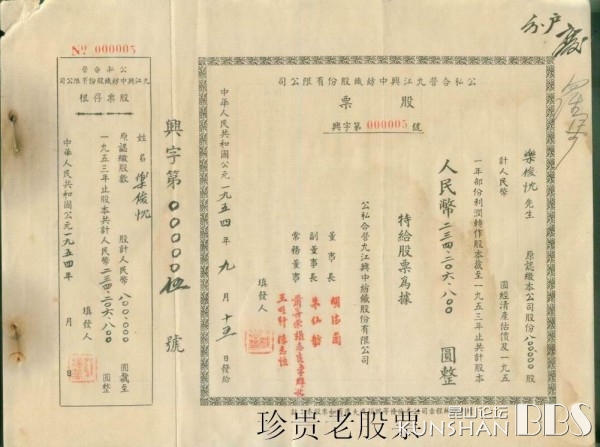 分户废
公私合營九江興中紡織股份有限公司
股票
興字第000005號
樂俊忱先生 原認繳本公司股份800000股
計人民幣 圓經清產估價及一九五
一年部份利潤轉作股本截至一九五三年止共計股本
人民幣二三四·二〇六·八〇 圓整
特給股票為據
公私合營九江興中紡織股份有限公司
董事長
副董事長 朱仙舫
常務董事
填發人
中華人民共和國公元一九五四年九月十五日發給
興字第00000伍號
No 000005
公私合營
九江興中紡織股份有限公司
股票存根
姓名 樂俊忱
原認繳股數 股計人民幣八〇〇·〇〇〇圓截至
一九五三年止股本共計人民幣二三四·二〇六·八〇圓整
填發人
中華人民共和國公元一九五四年 月 日
珍贵老股票
昆山论坛
KUNSHAN BBS